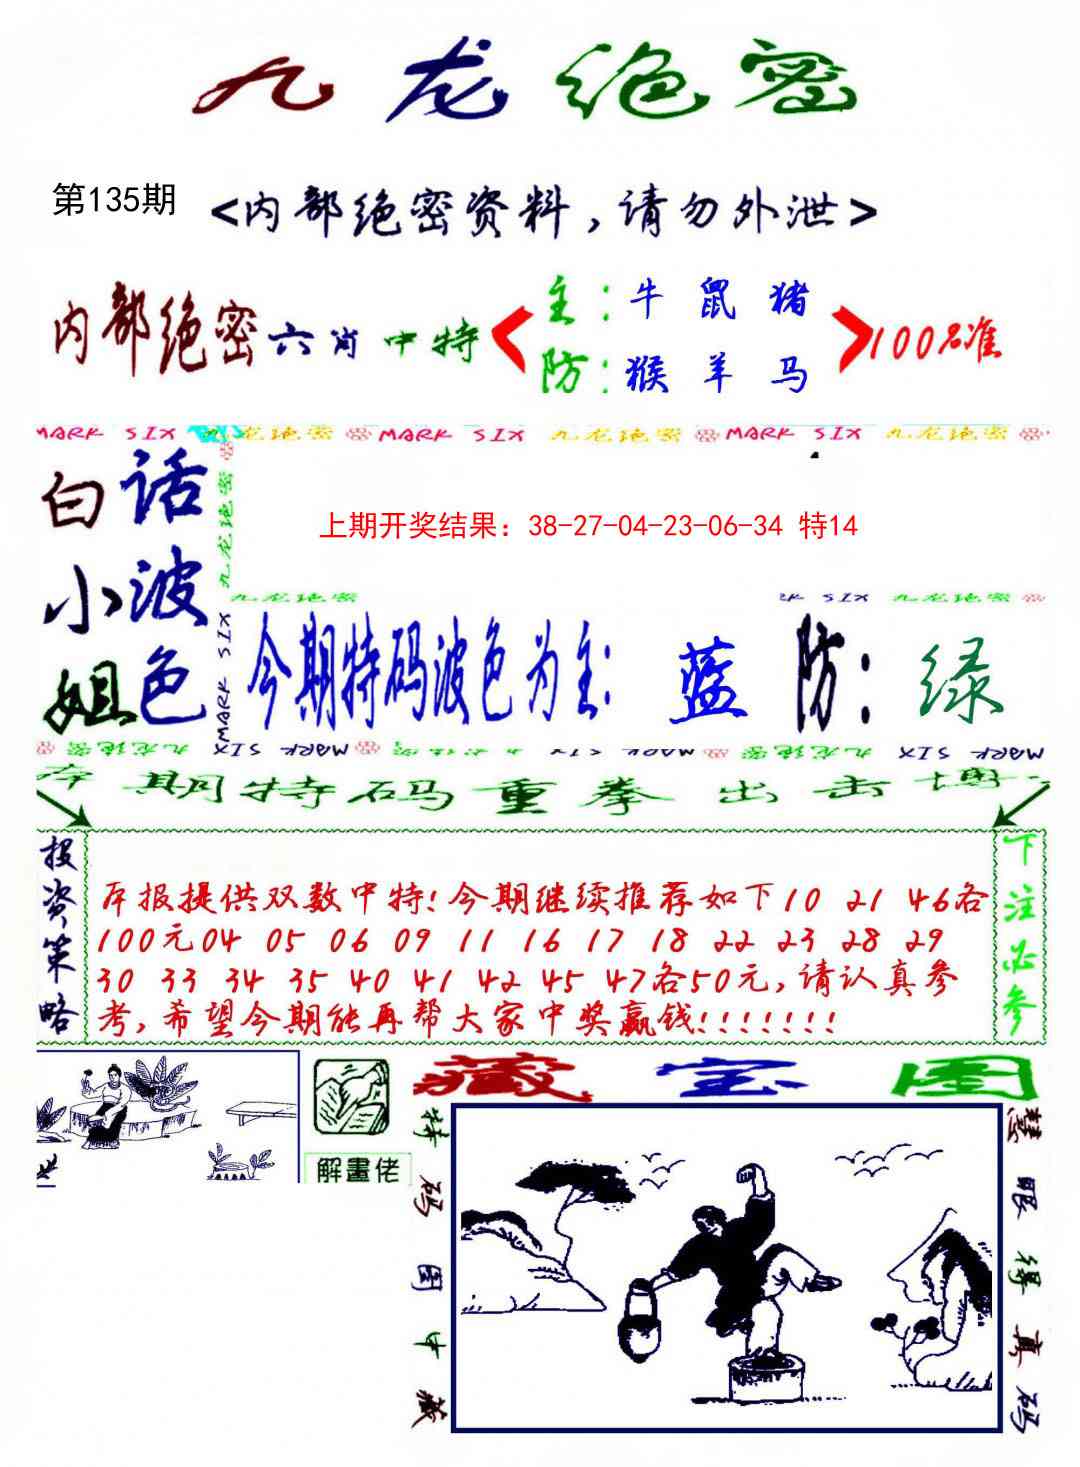 九龙绝密
第135期
<内部绝密资料,请勿外泄>
内部绝密六肖中特
主:牛 鼠 猪
防:猴 羊 马
100%准
MARK SIX 九龙绝密 MARK SIX 九龙绝密 MARK SIX 九龙绝密
白话
小波
姐色
九龙绝密
MARK SIX
上期开奖结果：38-27-04-23-06-34 特14
九龙绝密
SIX 九龙绝密
今期特码波色为主: 蓝 防: 绿
九龙绝密 MARK SIX 九龙绝密 MARK SIX
本期特码重拳出击博
投资策略
本报提供双数中特!今期继续推荐如下10 21 46各
100元04 05 06 09 11 16 17 18 22 23 28 29
30 33 34 35 40 41 42 45 47各50元,请认真参
考,希望今期能再帮大家中奖赢钱!!!!!!!
下注必参
解畫佬
藏宝图
特码图中藏
慧眼得真码